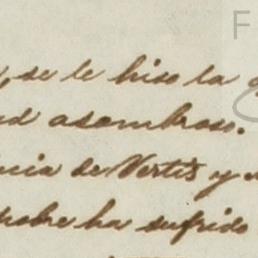 , se le hiso la
ud asombroso.
ncia de Vertis y
pobre ha sufrido